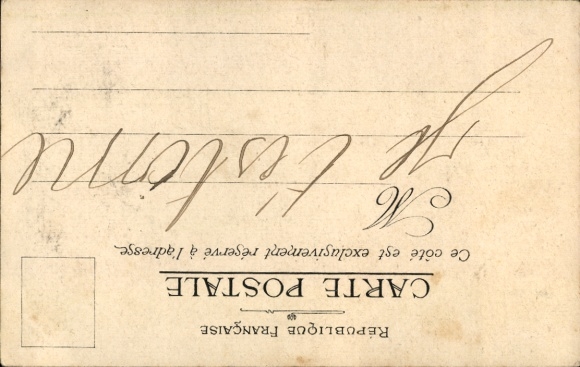 RÉPUBLIQUE FRANÇAISE
CARTE POSTALE
Ce côté est exclusivement réservé à l'adresse
M
Je t'estime